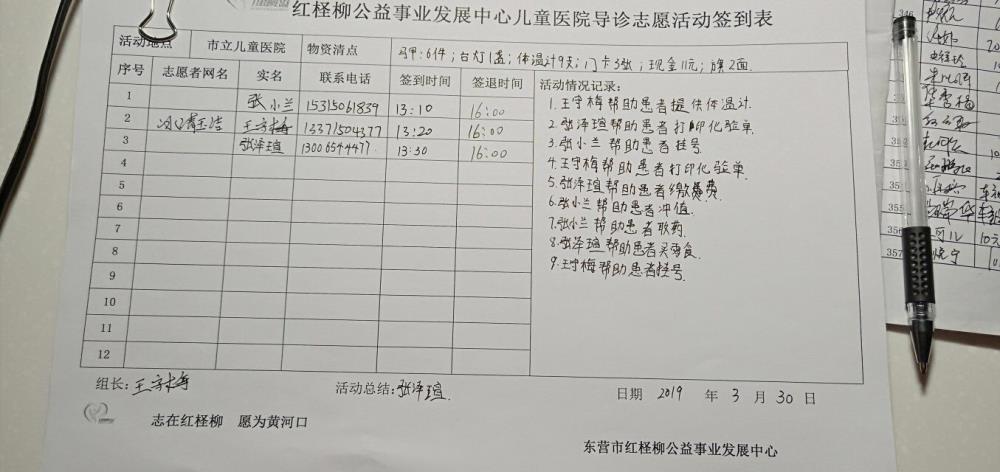 红柽柳公益事业发展中心儿童医院导诊志愿活动签到表
活动地点 市立儿童医院 物资清点 马甲:6件;台灯1盏;体温计9支;门卡3张;现金11元;旗2面
序号 志愿者网名 实名 联系电话 签到时间 签退时间 活动情况记录:
1 张小兰 15315061839 13:10 16:00
2 王守梅 13371504377 13:20 16:00
3 张泽瑄 13006544477 13:30 16:00
4
5
6
7
8
9
10
11
12
1.王守梅帮助患者提供体温计.
2.张泽瑄帮助患者打印化验单.
3.张小兰帮助患者挂号.
4.王守梅帮助患者打印化验单.
5.张泽瑄帮助患者缴费.
6.张小兰帮助患者冲值.
7.张小兰帮助患者取药.
8.张泽瑄帮助患者买零食.
9.王守梅帮助患者挂号.
组长:王守梅 活动总结:张泽瑄. 日期 2019 年 3 月 30 日
志在红柽柳 愿为黄河口
东营市红柽柳公益事业发展中心
346
355
356
10元
357